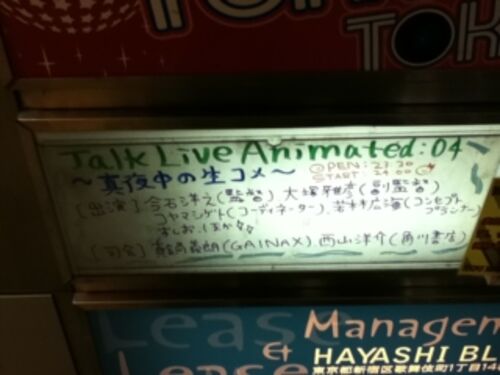 TOKYO
TOK
Talk Live Animated:04
～真夜中の生コメ～
OPEN:23:30
START:24:00
[出演]今石洋之(監督)大塚雅彦(副監督)
コヤマシゲト(コーディネーター)、若林広海(コンセプトプランナー)
すしお、ほか
[司会] (GAINAX) 西山洋介(角川書店)
Lease Managem
Lease Et HAYASHI BL
東京都新宿区歌舞伎町1丁目14